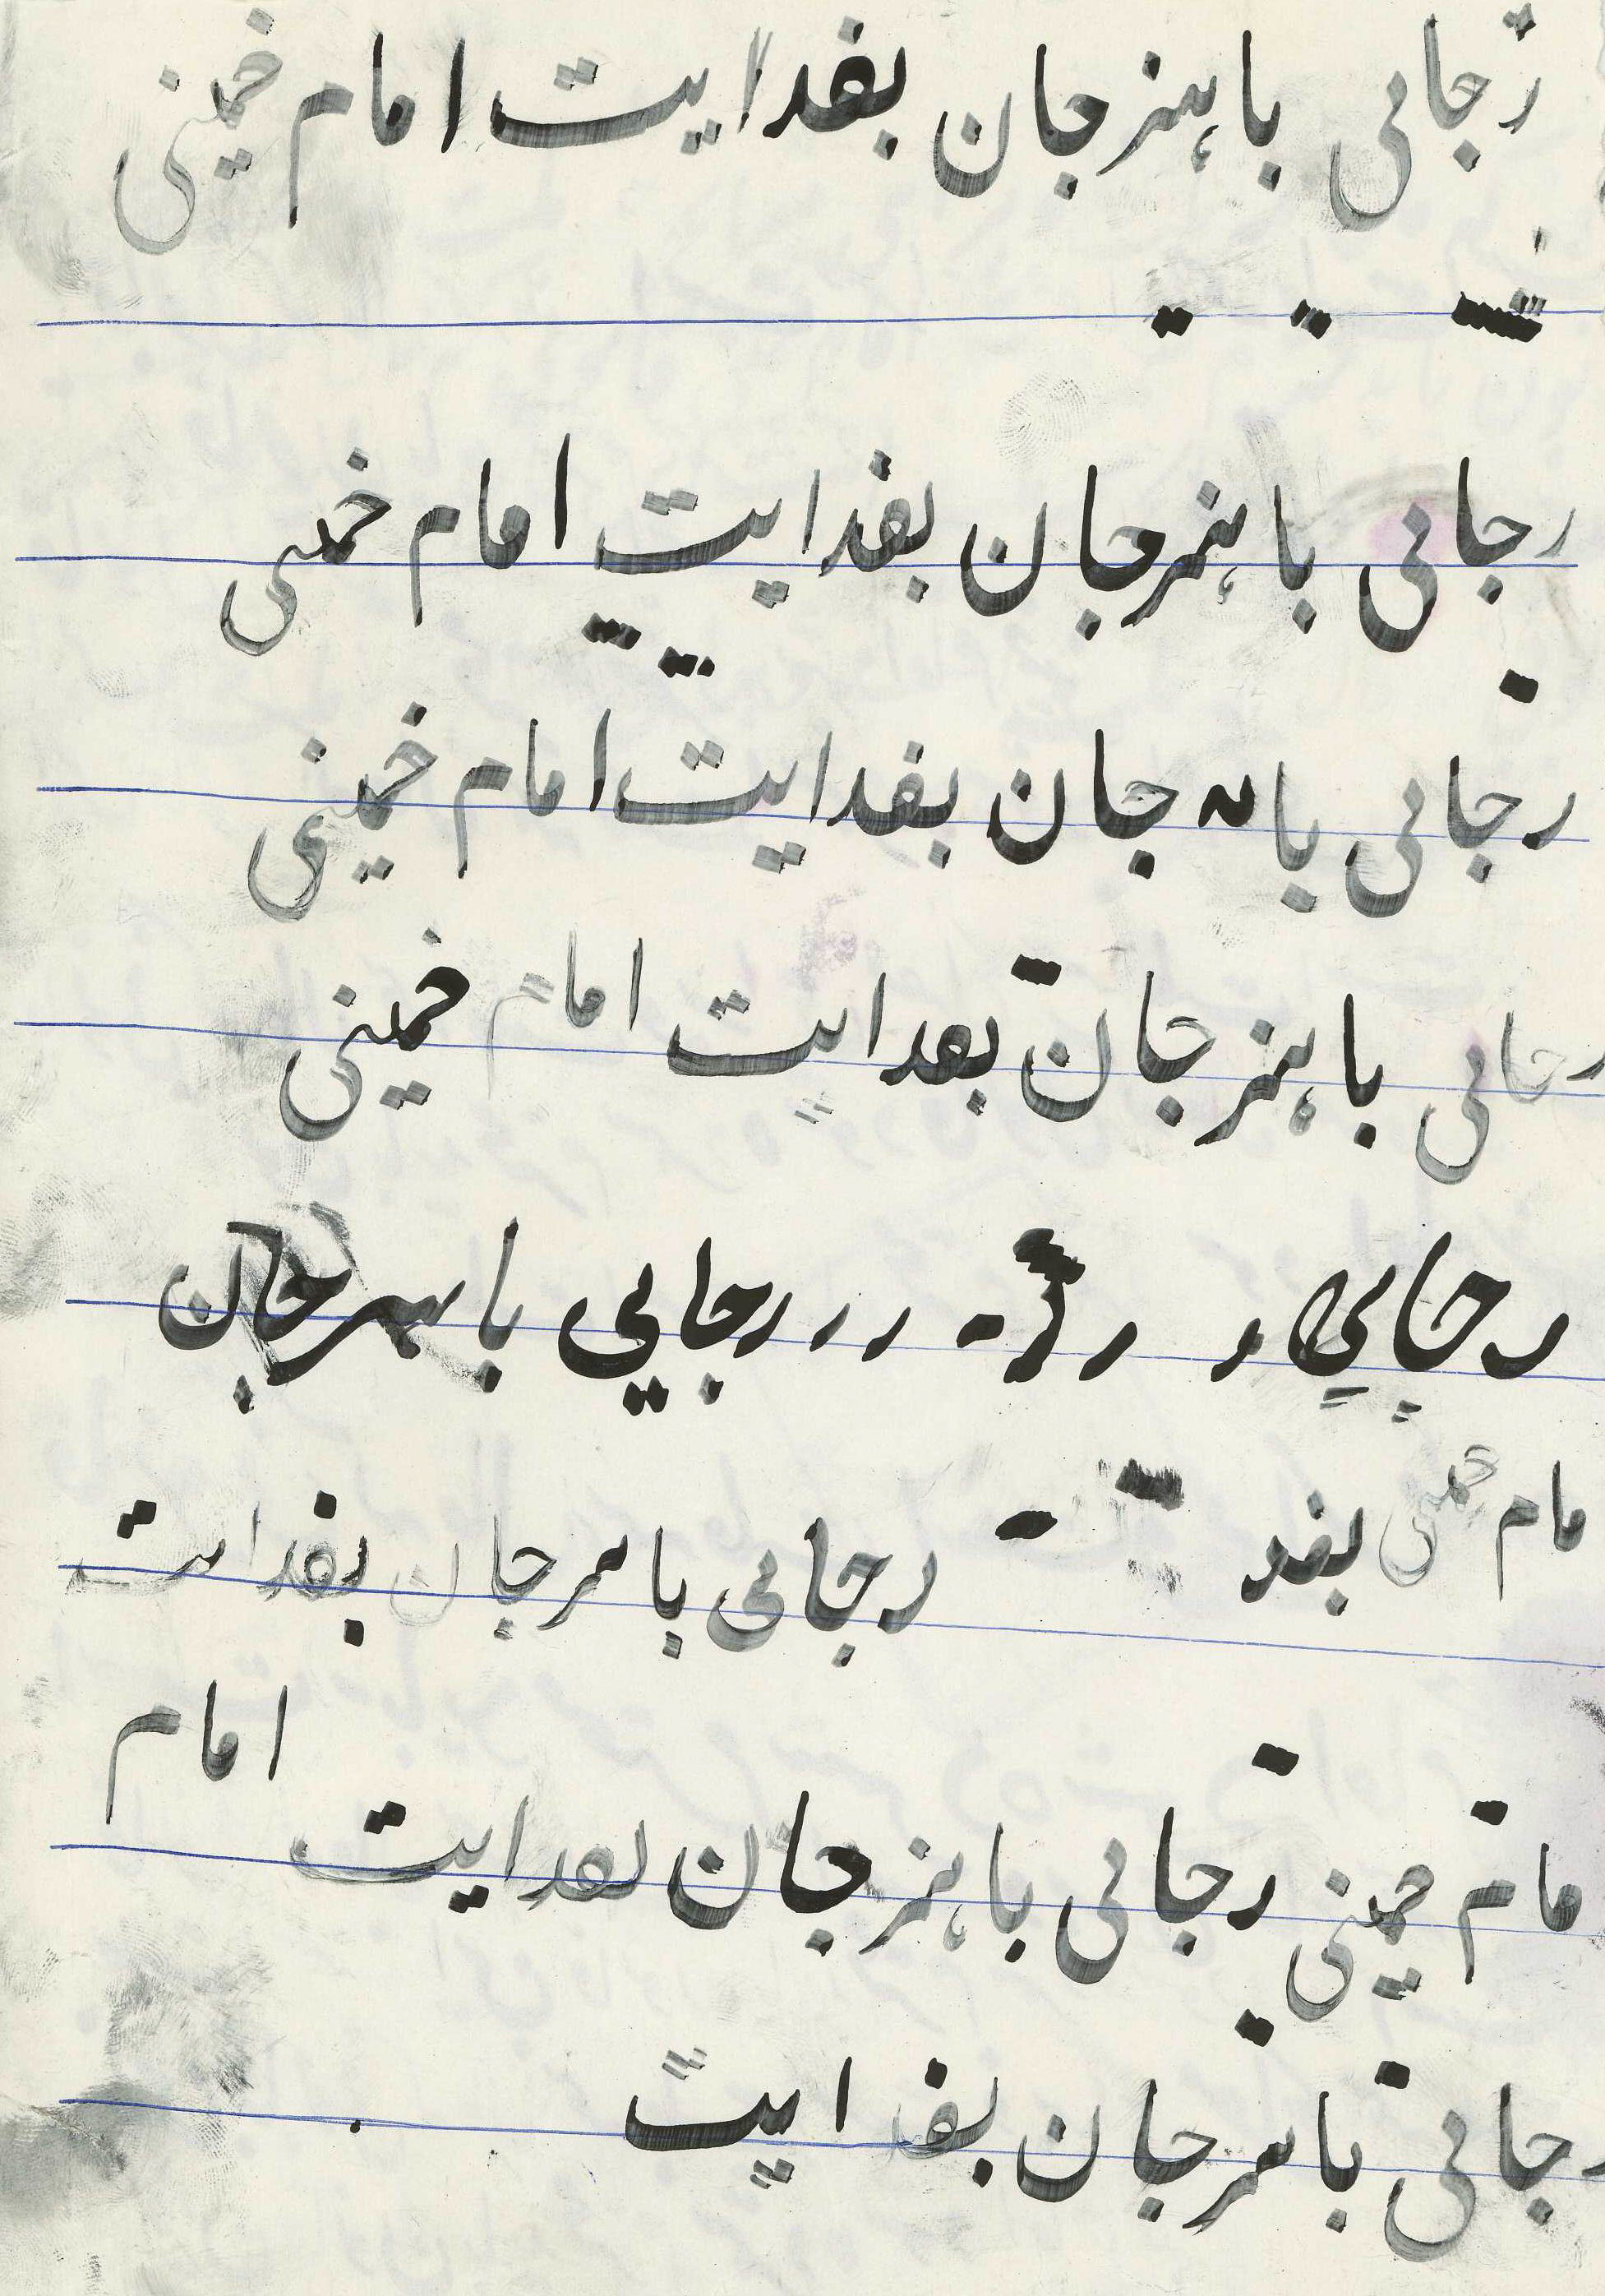 رجائی باهنر جان بفدایت امام خمینی
رجائی باهنر جان بفدایت امام خمینی
رجائی با جان بفدایت امام خمینی
رجائی باهنر جان بفدایت امام خمینی
رجایی ر ر ر ر ر رجایی با جان
مام خمینی بفد رجائی با جان بفدایت
امام
مام خمینی رجائی باهنر جان بفدایت
رجائی باهنر جان بفد ایت